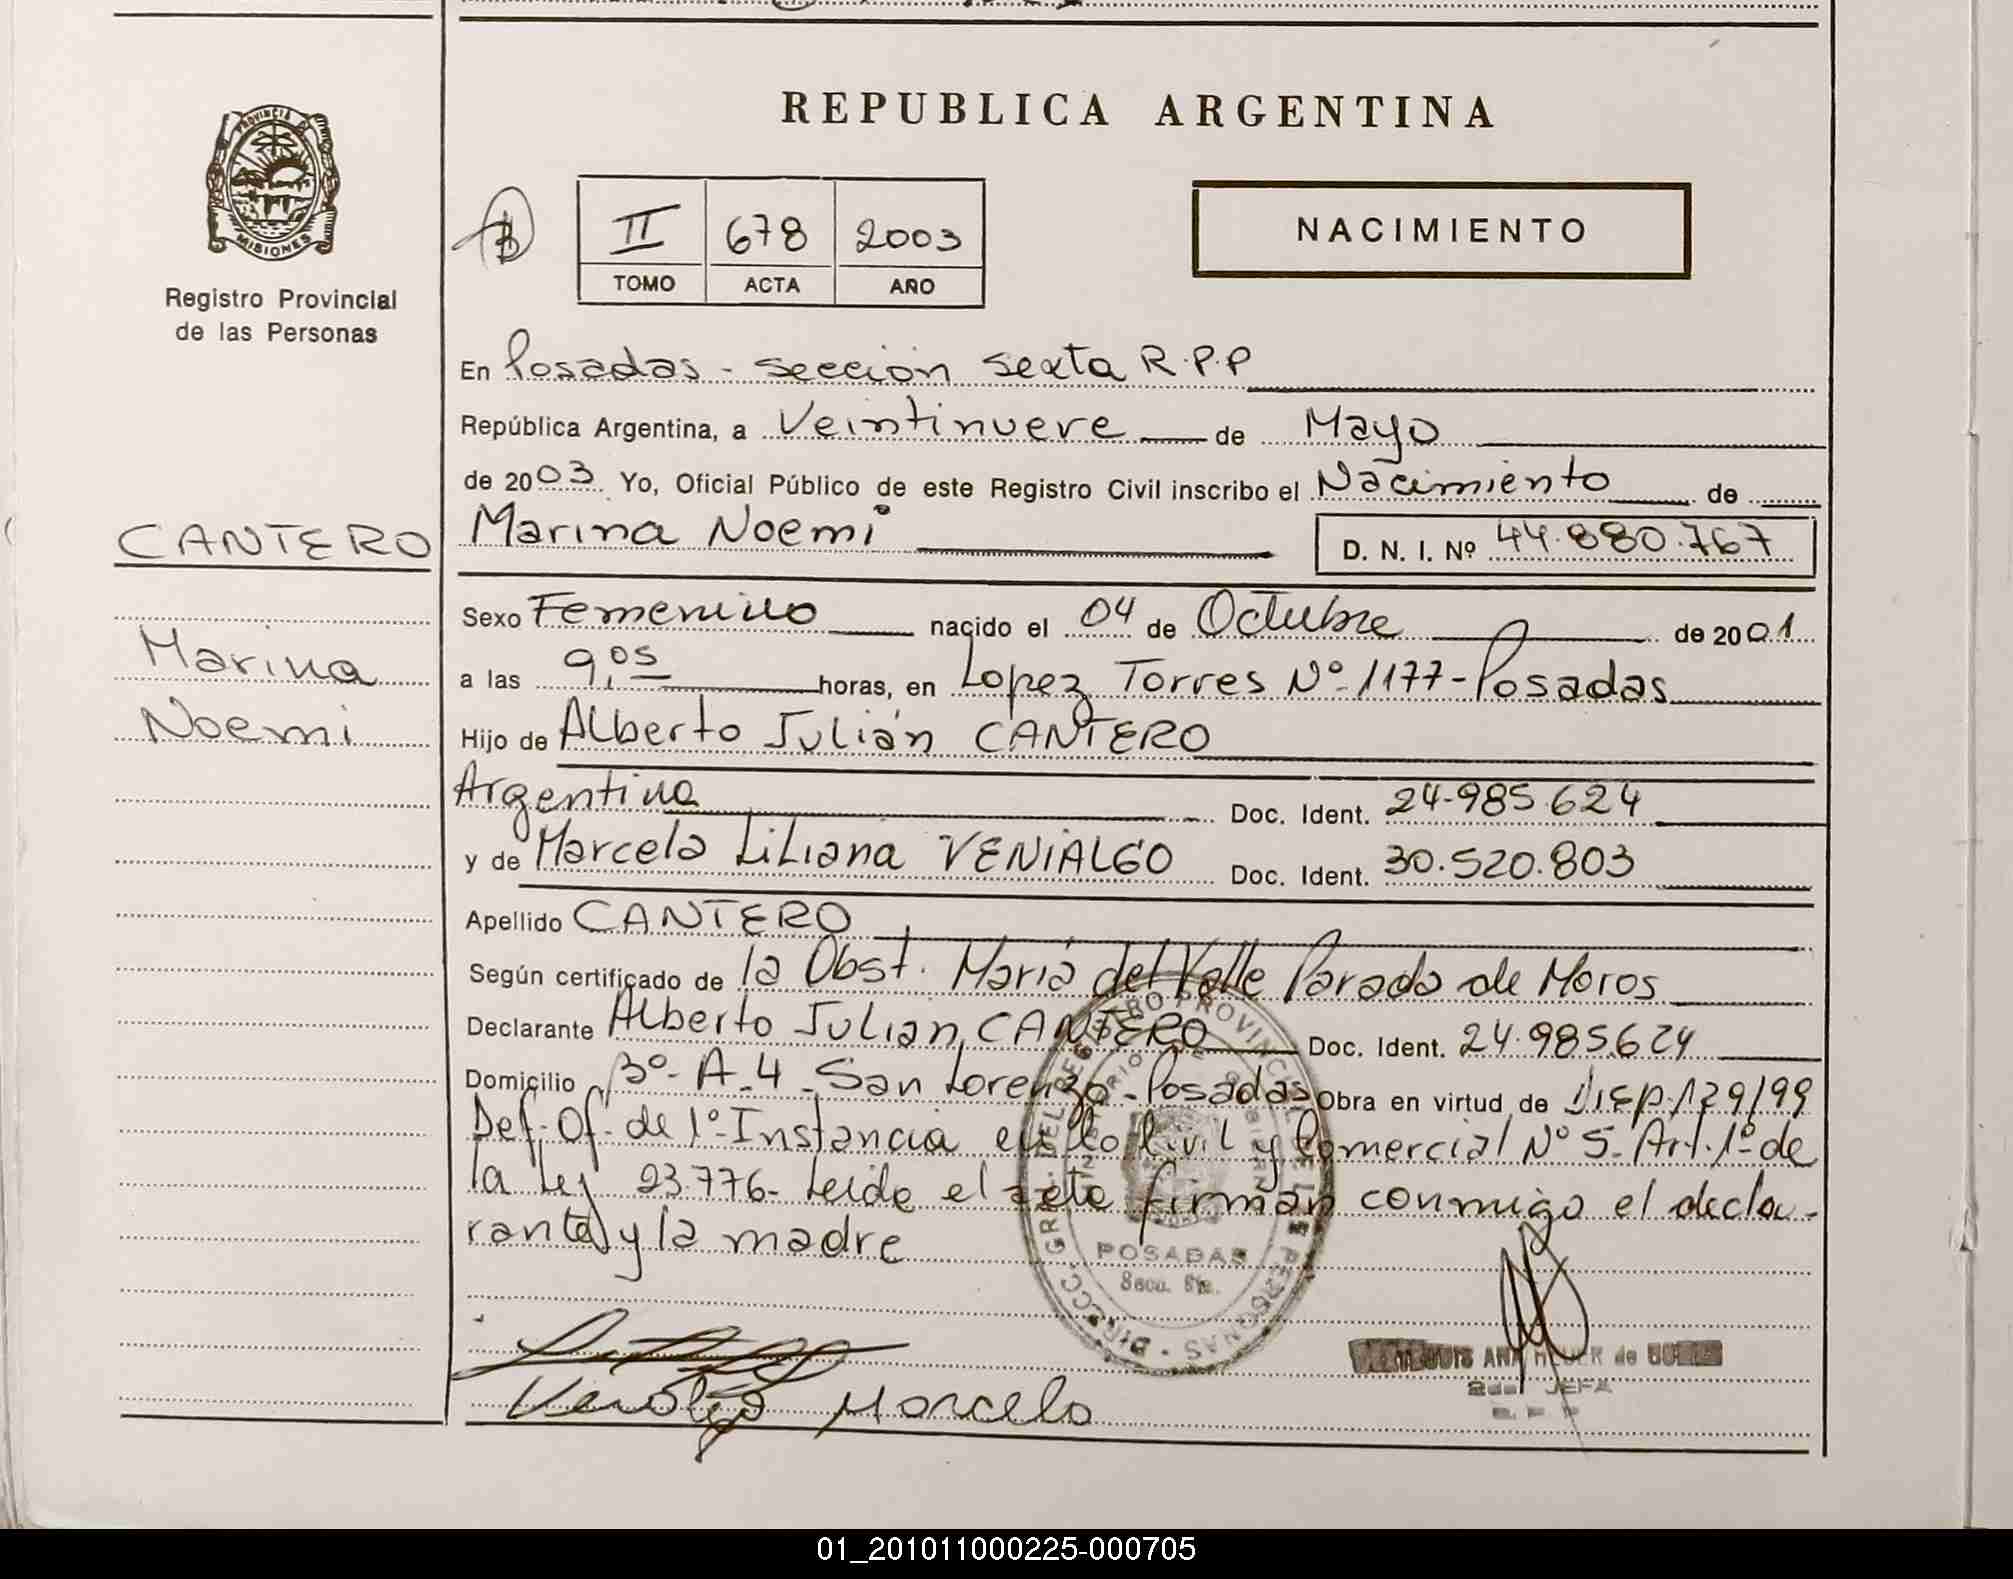 REPUBLICA ARGENTINA
PROVINCIA D
MISIONES
Registro Provincial
de las Personas
II 678 2003
TOMO ACTA AÑO
NACIMIENTO
En Posadas - sección sexta R.P.P
República Argentina, a Veintinueve de Mayo
de 2003 Yo, Oficial Público de este Registro Civil inscribo el Nacimiento de
CANTERO
Marina
Noemi
Marina Noemi D. N. I. Nº 44.880.767
Sexo Femenino nacido el 04 de Octubre de 2001
a las 9,05 horas, en Lopez Torres Nº 1177 - Posadas
Hijo de Alberto Julián CANTERO
Argentina Doc. Ident. 24.985.624
y de Marcela Liliana VENIALGO Doc. Ident. 30.520.803
Apellido CANTERO
Según certificado de la Obst. Maria del Valle Parada de Moros
Declarante Alberto Julian CANTERO Doc. Ident. 24.985.624
Domicilio 3º- A-4 - San Lorenzo - Posadas Obra en virtud de 129/99
Def. Of. de 1º Instancia en lo Civil y Comercial Nº 5. Art. 1º de
la Ley 23.776- Leida el acta firman conmigo el decla-
rante y la madre
DIRECC. GRAL. DEL REGISTRO PROVINCIAL DE LAS PERSONAS
POSADAS
Secc. 6ta.
Marcela
ANA de
JEFA
01_201011000225-000705